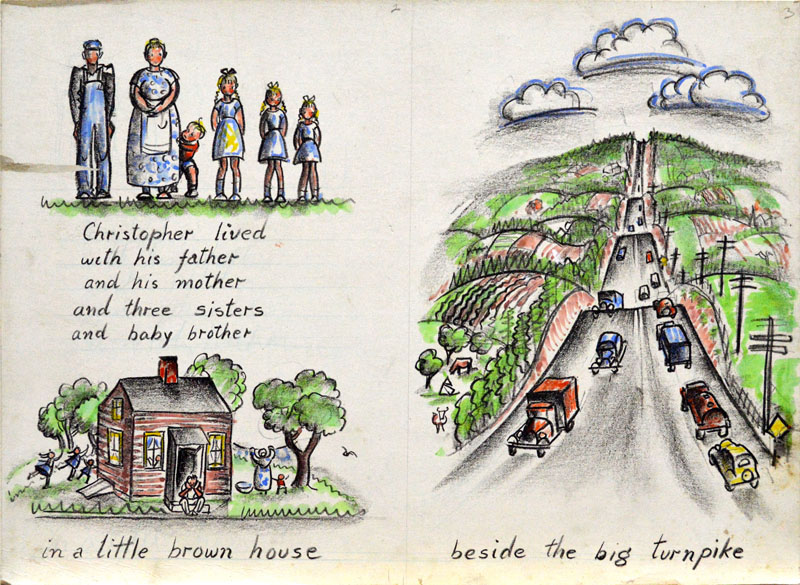 2
3
Christopher lived
with his father
and his mother
and three sisters
and baby brother
in a little brown house
beside the big turnpike